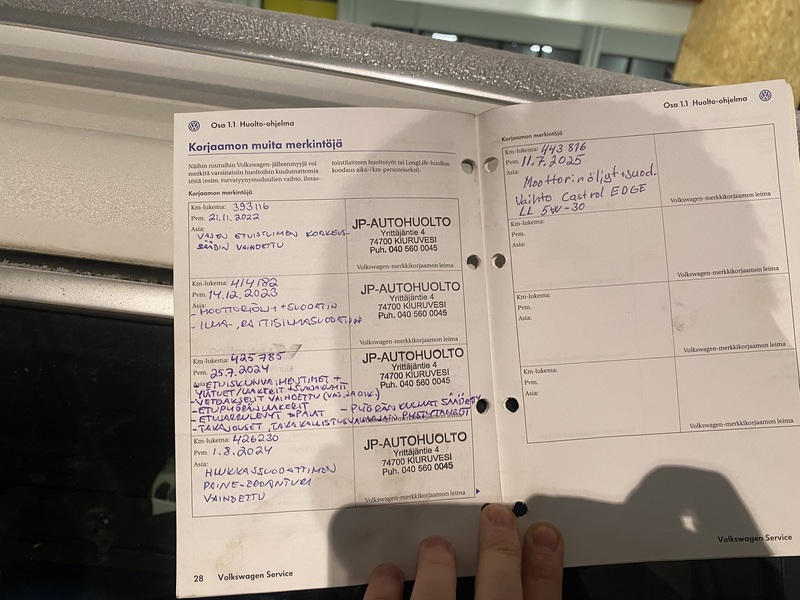 Osa 1.1 Huolto-ohjelma
Korjaamon muita merkintöjä
Näihin ruutuihin Volkswagen-jälleenmyyjä voi
merkitä varsinaisiin huoltoihin kuulumattomia
töitä (esim. turvatyynymoduulien vaihto, ilmas-
tointilaitteen huoltotyöt tai LongLife-huollon
koodaus aika-/km-perusteiseksi).
Korjaamon merkintöjä
Km-lukema: 393116
Pvm. 21.11.2022
Asia:
VASEN ETUISTUIMEN KORKEUS-
SÄÄDIN VAIHDETTU
JP-AUTOHUOLTO
Yrittäjäntie 4
74700 KIURUVESI
Puh. 040 560 0045
Volkswagen-merkkikorjaamon leima
Km-lukema: 414182
Pvm. 14.12.2023
Asia:
- MOOTTORIÖLJY + SUODATIN
- ILMA-, RAITISILMASUODATIN
JP-AUTOHUOLTO
Yrittäjäntie 4
74700 KIURUVESI
Puh. 040 560 0045
Volkswagen-merkkikorjaamon leima
Km-lukema: 425785
Pvm. 25.7.2024
Asia:
- ETUISKUNVAIMENTIMET +
- VETOAKSELIT VAIHDETTU (VAS. JA OIK.)
- ETUPYÖRÄNLAAKERIT
- PYÖRÄNKULMAT SÄÄDETTY
- ETUJARRULEVYT + PALAT
- TAKAJOUSET, TAKAKALLISTUSVAKAAJAN PYSTYTANGOT
JP-AUTOHUOLTO
Yrittäjäntie 4
74700 KIURUVESI
Puh. 040 560 0045
Km-lukema: 426230
Pvm. 1.8.2024
Asia:
HIUKKASSUODATTIMEN
PAINE-EROANTURI
VAIHDETTU
JP-AUTOHUOLTO
Yrittäjäntie 4
74700 KIURUVESI
Puh. 040 560 0045
Volkswagen-merkkikorjaamon leima
28 Volkswagen Service
Osa 1.1 Huolto-ohjelma
Korjaamon merkintöjä
Km-lukema: 443816
Pvm. 11.7.2025
Asia:
Moottorinöljyt + suod.
vaihto Castrol EDGE
LL 5W-30
Volkswagen-merkkikorjaamon leima
Km-lukema:
Pvm.
Asia:
Volkswagen-merkkikorjaamon leima
Km-lukema:
Pvm.
Asia:
Volkswagen-merkkikorjaamon leima
Km-lukema:
Pvm.
Asia:
Volkswagen-merkkikorjaamon leima
Volkswagen Service